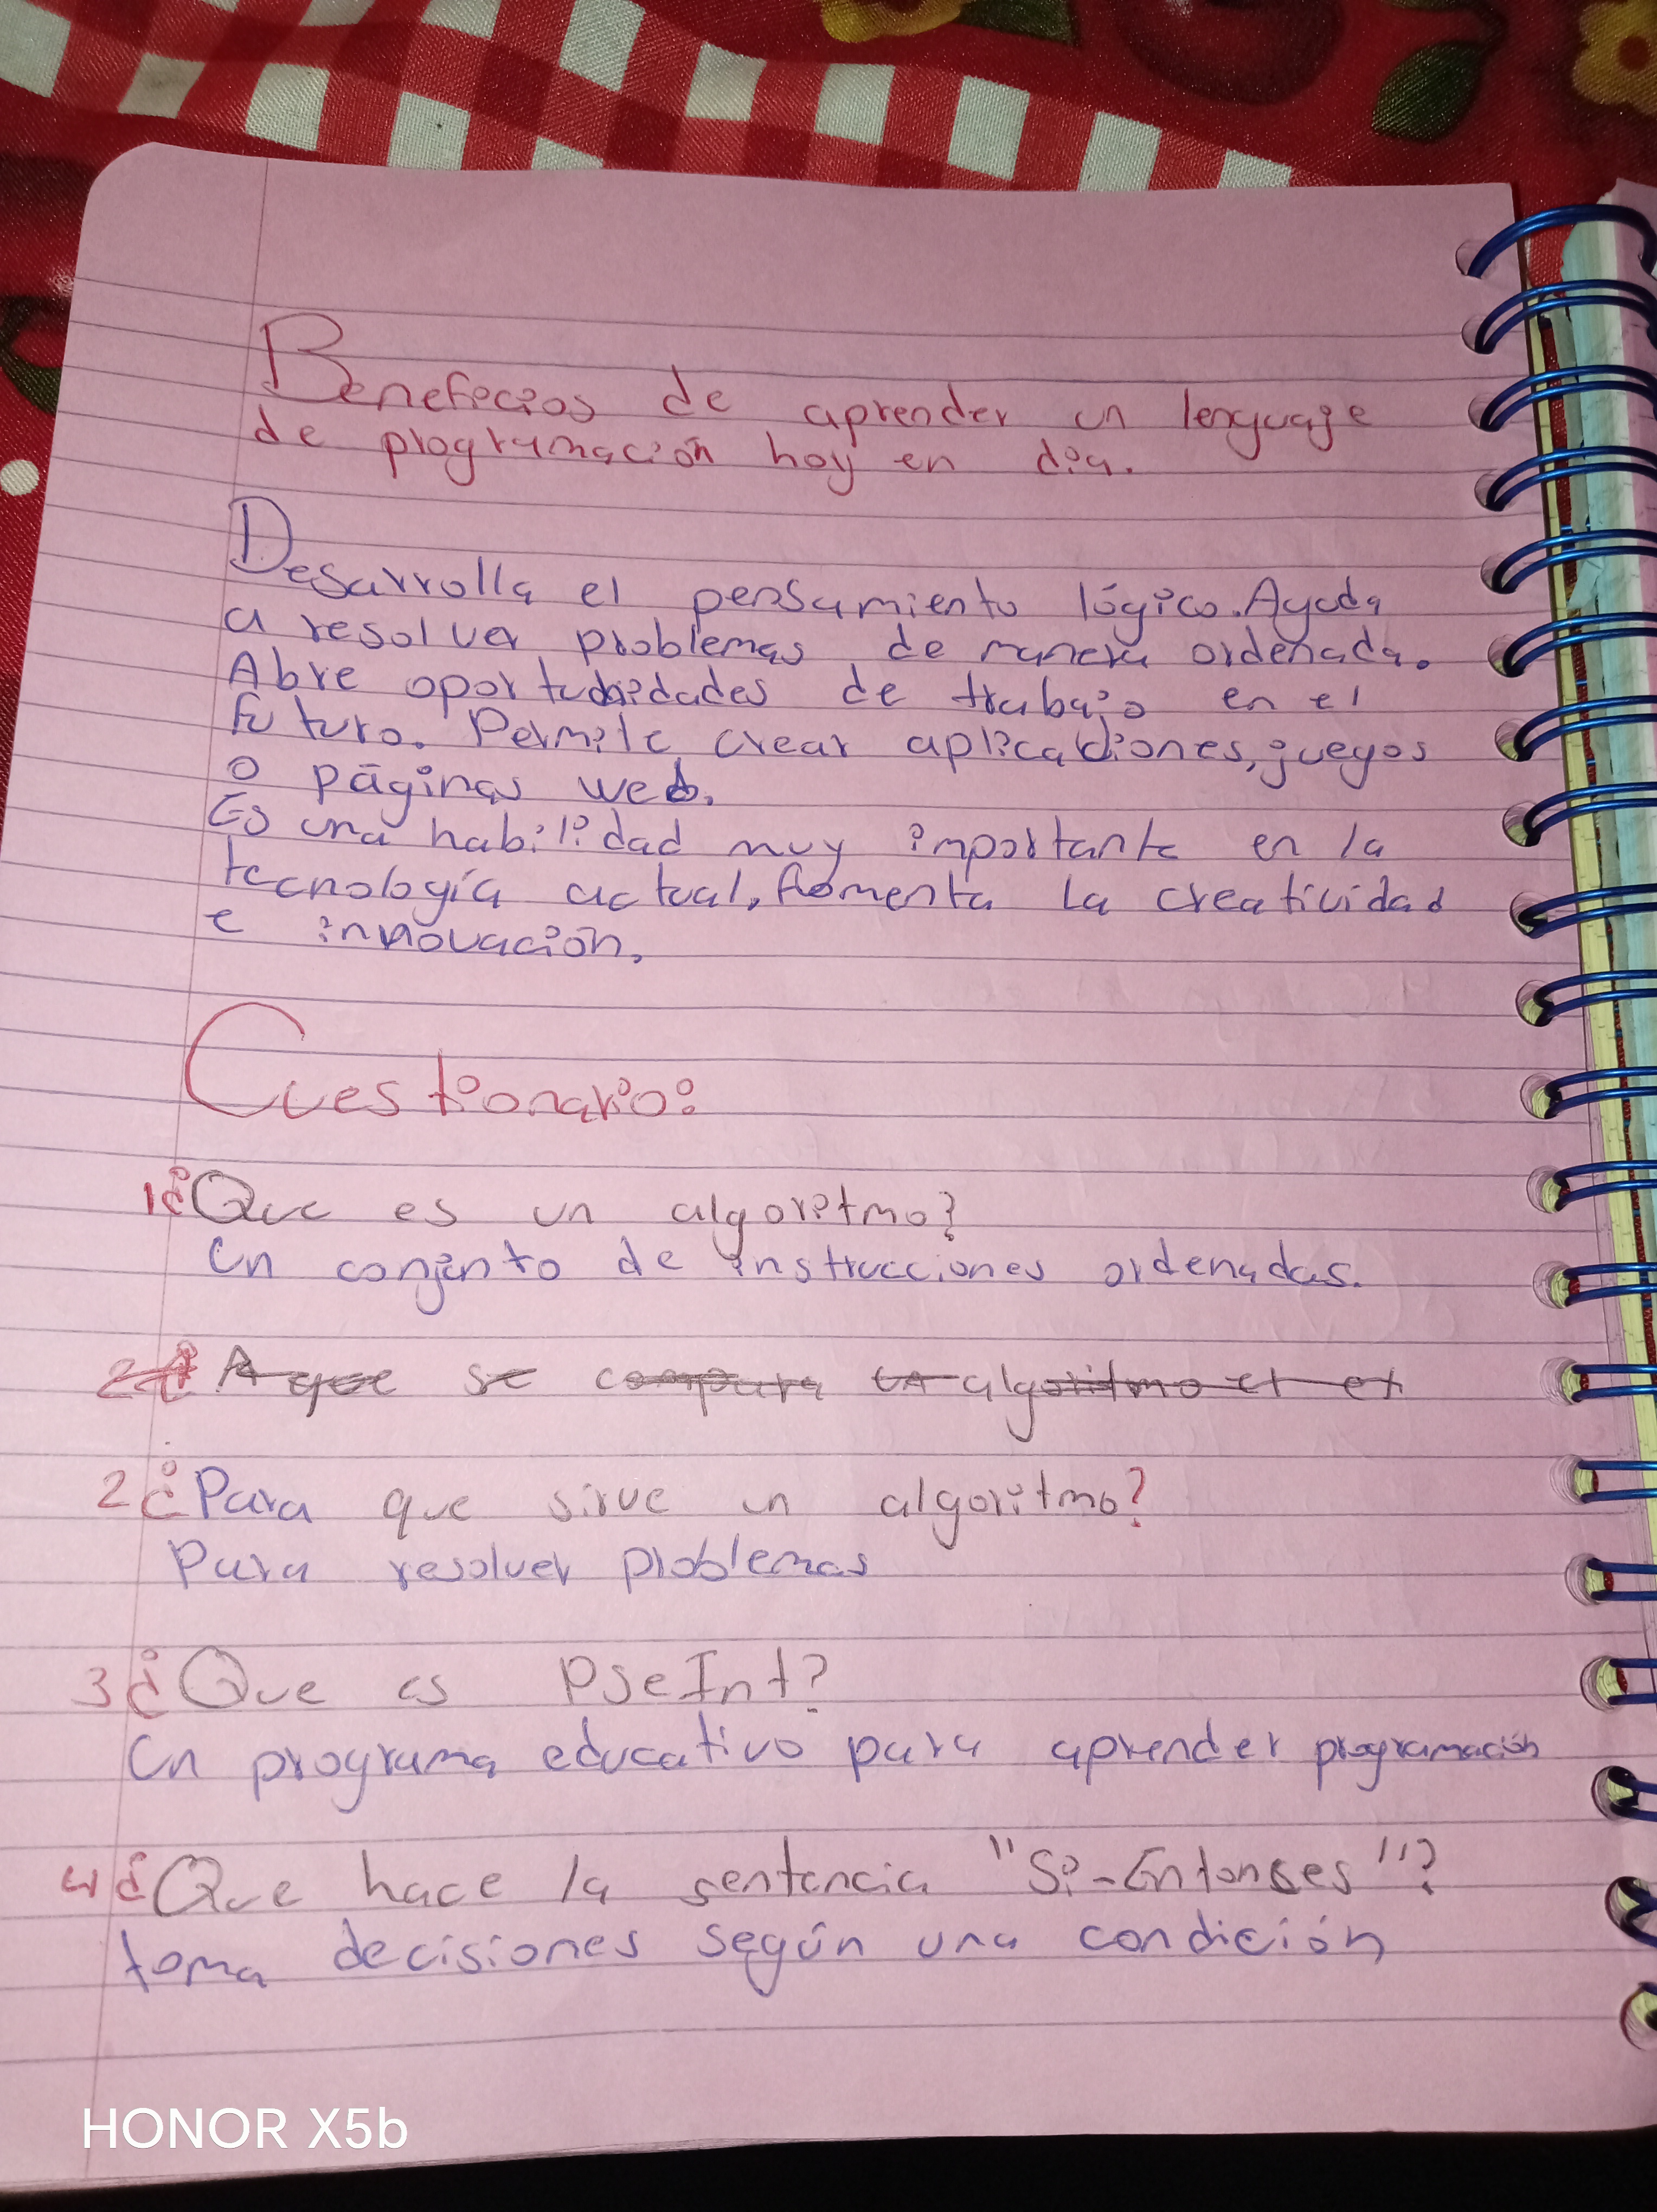 Beneficios de aprender un lenguaje
de programación hoy en dia.
Desarrolla el pensamiento lógico. Ayuda
a resolver problemas de manera ordenada.
Abre oportunidades de trabajo en el
futuro. Permite crear aplicaciones, juegos
o páginas web.
Es una habilidad muy importante en la
tecnología actual, fomenta la creatividad
e innovación.
Cuestionario:
1¿Que es un algoritmo?
Un conjunto de instrucciones ordenadas.
2¿ A que se compara un algoritmo el
2¿Para que sirve un algoritmo?
Para resolver problemas
3¿Que es PseInt?
Un programa educativo para aprender programación
4¿Que hace la sentencia "Si-Entonses"?
toma decisiones según una condición
HONOR X5b